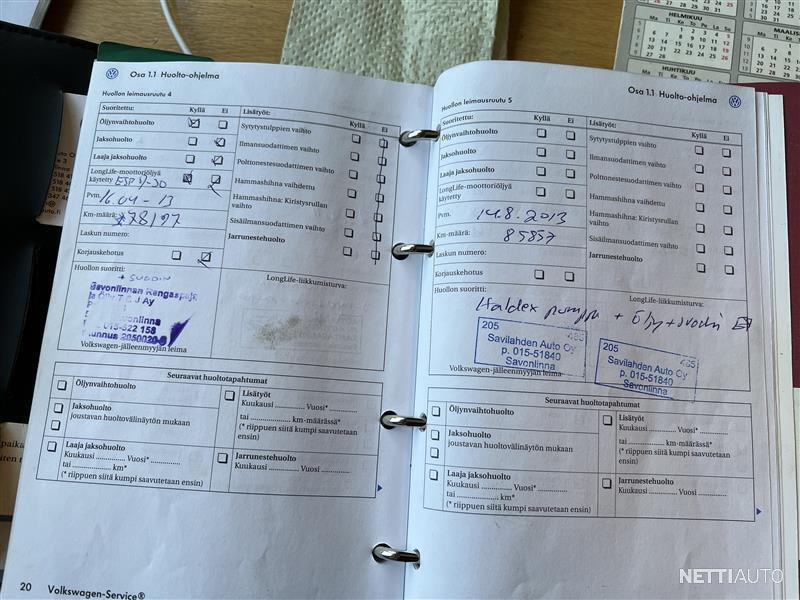 HELMIKUU
Ma Ti Ke To Pe La Su
MAALIS
HUHTIKUU
Osa 1.1 Huolto-ohjelma
Huollon leimausruutu 4
Suoritettu: Kyllä Ei
Öljynvaihtohuolto
Jaksohuolto
Laaja jaksohuolto
LongLife-moottoriöljyä
käytetty
Pvm. 16.04-13
Km-määrä:
Laskun numero:
Korjauskehotus
Huollon suoritti:
+ SUODIN
Savonlinnan Rengaspalv
ja Öljy T & J Ay
015-522 158
Volkswagen-jälleenmyyjän leima
Lisätyöt: Kyllä Ei
Sytytystulppien vaihto
Ilmansuodattimen vaihto
Polttonestesuodattimen vaihto
Hammashihna vaihdettu
Hammashihna: Kiristysrullan
vaihto
Sisäilmansuodattimen vaihto
Jarrunestehuolto
LongLife-liikkumisturva:
Seuraavat huoltotapahtumat
Öljynvaihtohuolto
Jaksohuolto
joustavan huoltovälinäytön mukaan
Laaja jaksohuolto
Kuukausi .............. Vuosi* ..............
tai .................... km*
(* riippuen siitä kumpi saavutetaan ensin)
Lisätyöt
Kuukausi .......... Vuosi* ..........
tai .................... km-määrässä*
(* riippuen siitä kumpi saavutetaan
ensin)
Jarrunestehuolto
Kuukausi .......... Vuosi ..........
20 Volkswagen-Service®
Osa 1.1 Huolto-ohjelma
Huollon leimausruutu 5
Suoritettu: Kyllä Ei
Öljynvaihtohuolto
Jaksohuolto
Laaja jaksohuolto
LongLife-moottoriöljyä
käytetty
Pvm. 14.8.2013
Km-määrä: 85857
Laskun numero:
Korjauskehotus
Huollon suoritti:
Haldex pumppu + Öljy + suodin
205 465
Savilahden Auto Oy
p. 015-51840
Savonlinna
Volkswagen-jälleenmyyjän leima
Lisätyöt: Kyllä Ei
Sytytystulppien vaihto
Ilmansuodattimen vaihto
Polttonestesuodattimen vaihto
Hammashihna vaihdettu
Hammashihna: Kiristysrullan
vaihto
Sisäilmansuodattimen vaihto
Jarrunestehuolto
LongLife-liikkumisturva:
205 465
Savilahden Auto Oy
p. 015-51840
Savonlinna
Seuraavat huoltotapahtumat
Öljynvaihtohuolto
Jaksohuolto
joustavan huoltovälinäytön mukaan
Laaja jaksohuolto
Kuukausi .............. Vuosi* ..............
tai .................... km*
(* riippuen siitä kumpi saavutetaan ensin)
Lisätyöt
Kuukausi .......... Vuosi* ..........
tai .................... km-määrässä*
(* riippuen siitä kumpi saavutetaan
ensin)
Jarrunestehuolto
Kuukausi .......... Vuosi ..........
NETTIAUTO